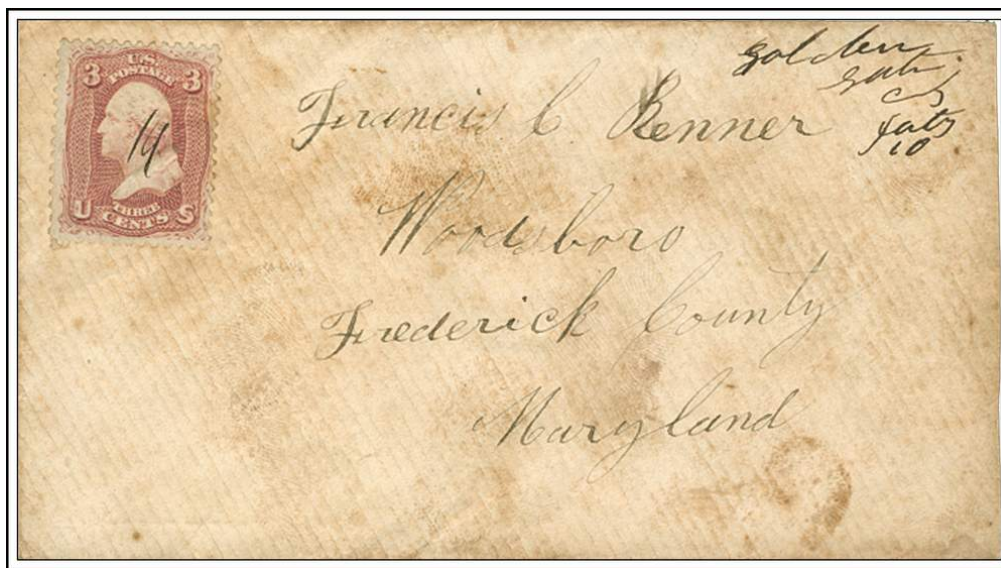 3 U.S. POSTAGE 3
14
U THREE CENTS S
golden
gate
CT
July
10
Francis C. Renner
Woodsboro
Frederick County
Maryland